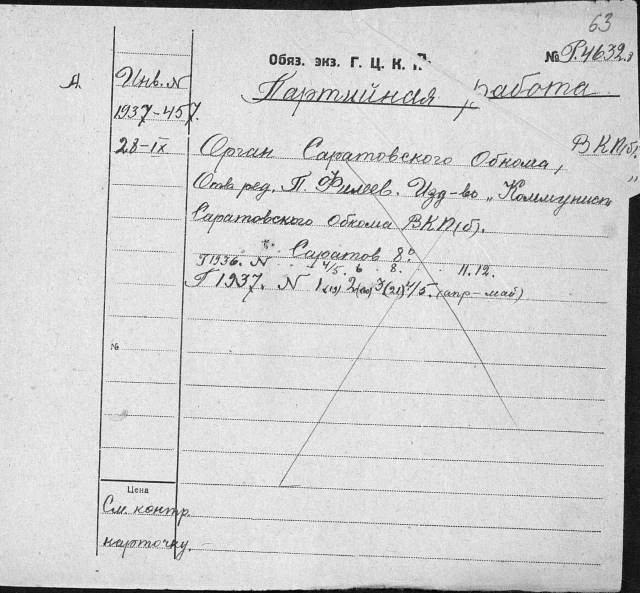 63
Обяз. экз. Г. Ц. К. П.
№ Р.4632.з
А
Инв. N
1937-457.
28-IX
Партийная работа
Орган Саратовского Обкома, ВКП(б).
Отв ред. П. Филеев. Изд-во „Коммунист"
Саратовского Обкома ВКП(б).
Саратов 8°
Г1936. N 4/5. 6 8. 11. 12.
Г1937. N 1(19) 2(20) 3(21) 4/5. (апр-май)
№
Цена
См. контр.
карточку.